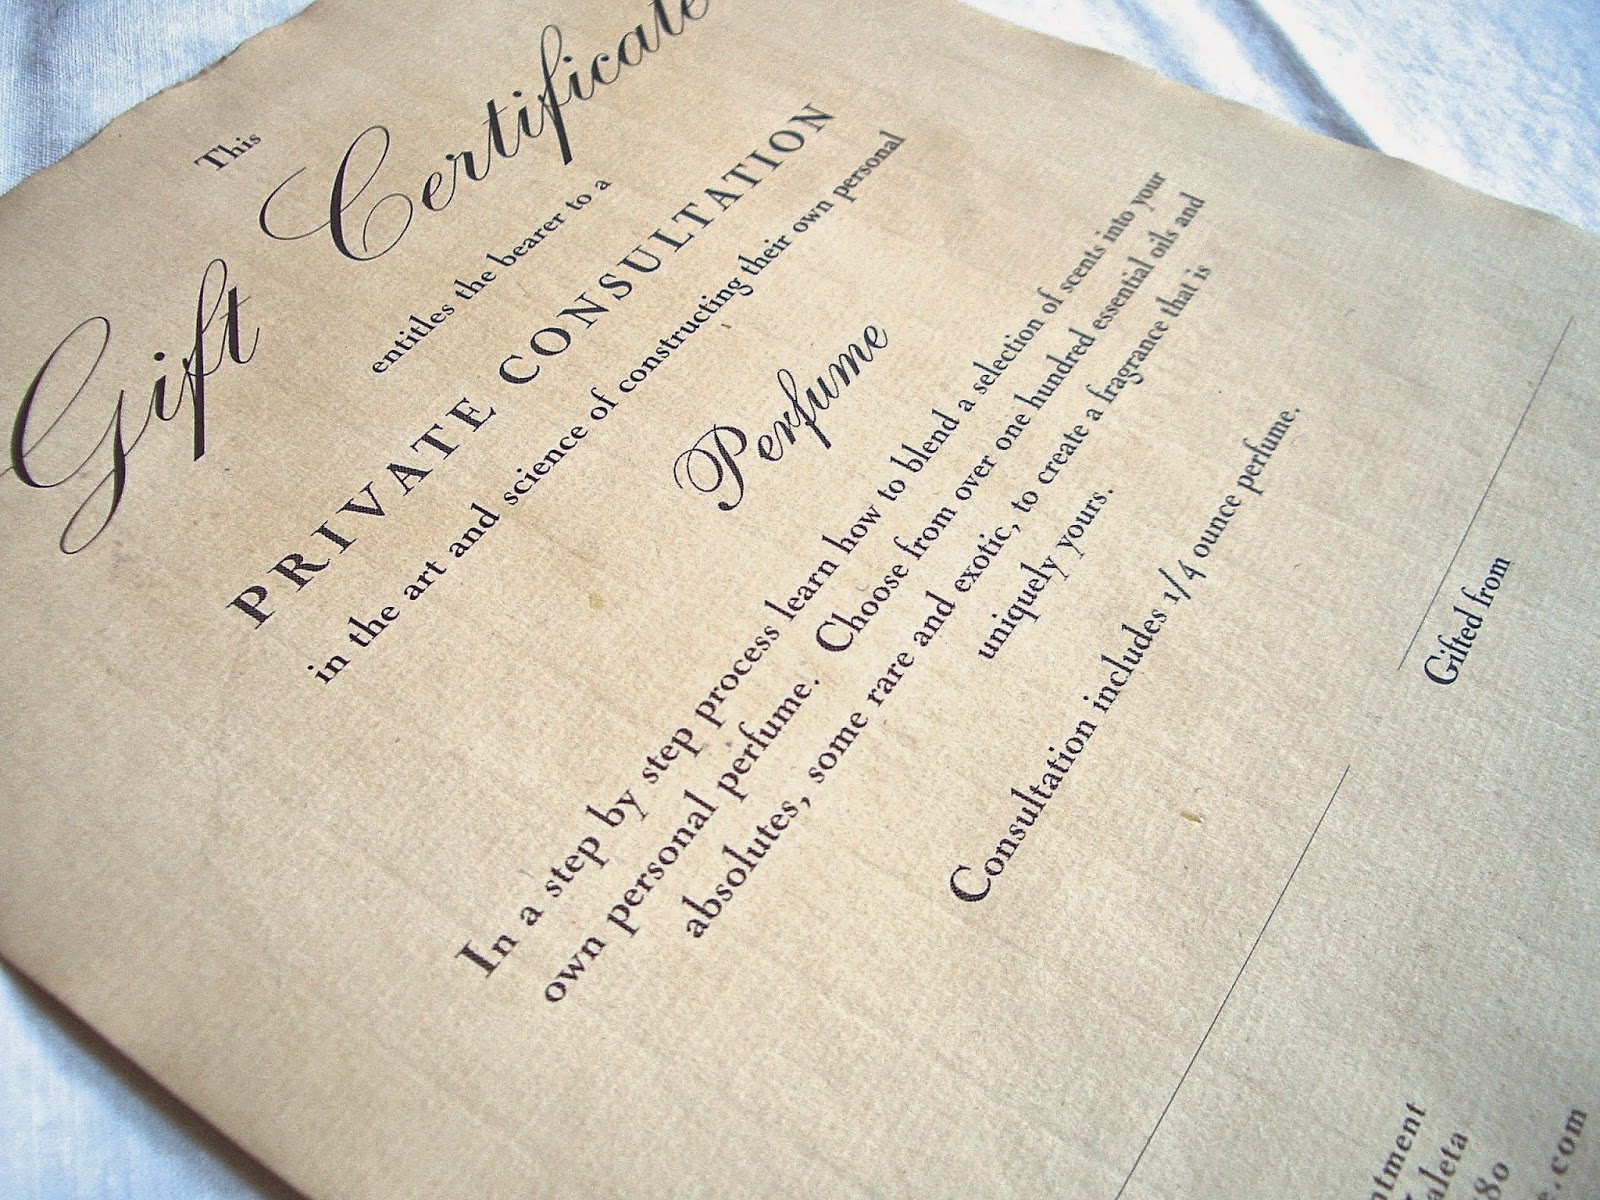 This
Gift Certificate
entitles the bearer to a
PRIVATE CONSULTATION
in the art and science of constructing their own personal
Perfume
In a step by step process learn how to blend a selection of scents into your
own personal perfume. Choose from over one hundred essential oils and
absolutes, some rare and exotic, to create a fragrance that is
uniquely yours.
Consultation includes 1/4 ounce perfume.
Gifted from
.com